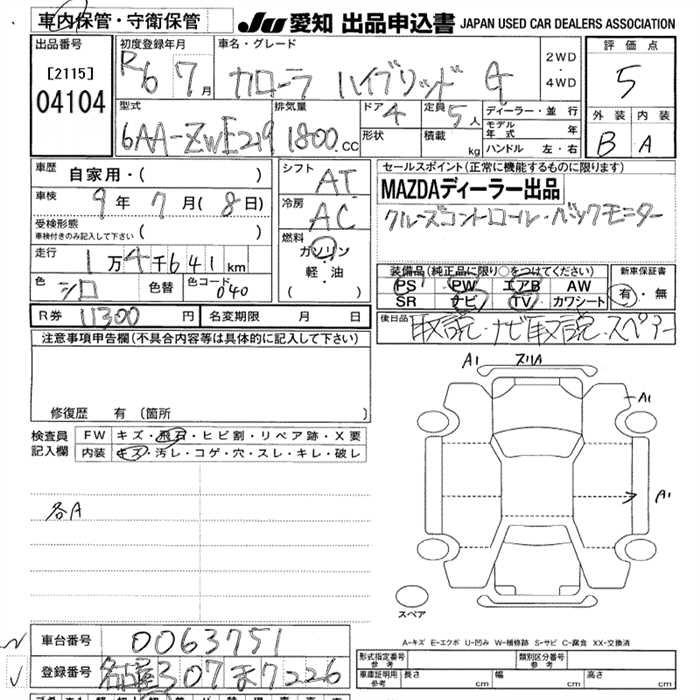 車内保管・守衛保管
JU 愛知 出品申込書 JAPAN USED CAR DEALERS ASSOCIATION
出品番号
[2115]
04104
初度登録年月
R6 7月
車名・グレード
カローラ ハイブリッド G
2WD
・
4WD
評価点
5
外装 内装
B A
型式
6AA-ZWE219
排気量
1800.cc
ドア 4
定員 5人
形状
積載 kg
ディーラー・並行
モデル年式 年
ハンドル 左・右
車歴
自家用・( )
車検
9年 7月 (8日)
受検形態
車検付きのみ記入して下さい ( )
走行
1万4千641km
色 シロ
色替
色コード 040
シフト AT
冷房 AC
燃料
ガソリン
・
軽・油
( )
R券 11300円
名変期限 月 日
セールスポイント(正常に機能するものに限ります)
MAZDAディーラー出品
クルーズコントロール・バックモニター
装備品(純正品に限り○をつけてください)
PS PW エアB AW
SR ナビ TV カワシート
新車保証書
有・無
後日品
取説・ナビ取説・スペアー
注意事項申告欄(不具合内容等は具体的に記入して下さい)
修復歴 有 〔箇所 〕
検査員記入欄
FW キズ・飛石・ヒビ割・リペア跡・X要
内装 キズ・汚レ・コゲ・穴・スレ・キレ・破レ
各A
A1 スリA
A1
A1
スペア
A-キズ E-エクボ U-凹み W-補修跡 S-サビ C-腐食 XX-交換済
車台番号 0063751
登録番号 名古屋307ま7226
形式指定番号 参考
類別区分番号 参考
車庫証明用 参考 長さ cm 幅 cm 高さ cm